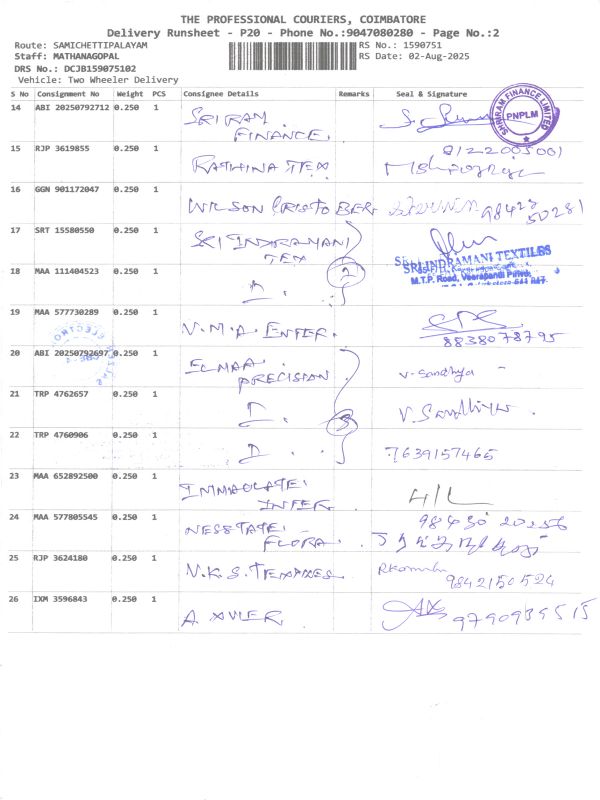 THE PROFESSIONAL COURIERS, COIMBATORE
Delivery Runsheet - P20 - Phone No.:9047080280 - Page No.:2
Route: SAMICHETTIPALAYAM RS No.: 1590751
Staff: MATHANAGOPAL RS Date: 02-Aug-2025
DRS No.: DCJB159075102
Vehicle: Two Wheeler Delivery
S No Consignment No Weight PCS Consignee Details Remarks Seal & Signature
14 ABI 20250792712 0.250 1 SRI RAM. FINANCE.
SHRIRAM FINANCE LIMITED
PNPLM
15 RJP 3619855 0.250 1 RATHINA TEX
16 GGN 901172047 0.250 1 WILSON CRISTOBER 98423
50281
17 SRT 15580550 0.250 1 SRI INDRAMANI TEX
SRI INDRAMANI TEXTILES
M.T.P. Road, Veerapandi
18 MAA 111404523 0.250 1 2
19 MAA 577730289 0.250 1 V.M.A. ENTER.
8838078795
20 ABI 20250792697 0.250 1 ELMAA. PRECISION V-Sandhya
21 TRP 4762657 0.250 1 3 V.Sandhiya.
22 TRP 4760906 0.250 1 7639157465
23 MAA 652892500 0.250 1 IMMACLATE. INFER
24 MAA 577805545 0.250 1 FLORA. 98430 20256
25 RJP 3624180 0.250 1 V.K.S. 9842150524
26 IXM 3596843 0.250 1 A XVIER 9790935515